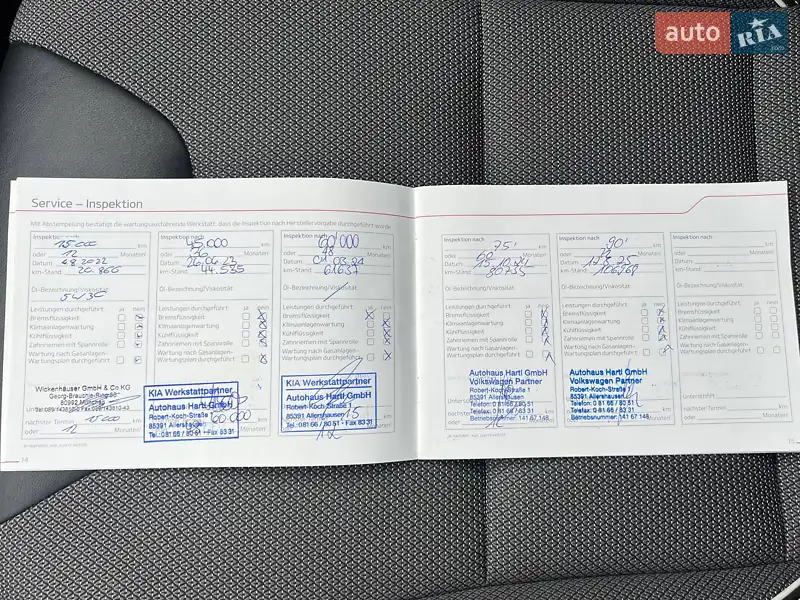 auto RIA
.com
Service – Inspektion
Mit Abstempelung bestätigt die wartungsausführende Werkstatt, dass die Inspektion nach Herstellervorgabe durchgeführt wurde
Inspektion nach
15.000 km
oder 12 Monaten
Datum
km-Stand
Öl-Bezeichnung/Viskosität
5W30
Leistungen durchgeführt: ja nein
Bremsflüssigkeit
Klimaanlagenwartung
Kühlflüssigkeit
Zahnriemen mit Spannrolle
Wartung nach Gasanlagen-
Wartungsplan durchgeführt
Wickenhäuser GmbH & Co KG
80992 München
nächster Termin
oder 12 Monaten
14
Inspektion nach
45.000 km
oder 36 Monaten
Datum 26.04.23
km-Stand 44.585
Öl-Bezeichnung/Viskosität
Leistungen durchgeführt: ja nein
Bremsflüssigkeit
Klimaanlagenwartung
Kühlflüssigkeit
Zahnriemen mit Spannrolle
Wartung nach Gasanlagen-
Wartungsplan durchgeführt
KIA Werkstattpartner
Autohaus Hartl GmbH
Robert-Koch-Straße 1
85391 Allershausen
Tel.: 081 66 / 80 51 - Fax 83 31
60.000
Inspektion nach
60.000 km
oder 48 Monaten
Datum
km-Stand 61657
Öl-Bezeichnung/Viskosität
Leistungen durchgeführt: ja nein
Bremsflüssigkeit
Klimaanlagenwartung
Kühlflüssigkeit
Zahnriemen mit Spannrolle
Wartung nach Gasanlagen-
Wartungsplan durchgeführt
KIA Werkstattpartner
Autohaus Hartl GmbH
Robert-Koch-Straße 1
85391 Allershausen
Tel.: 081 66 / 80 51 - Fax 83 31
12
Inspektion nach
75' km
oder Monaten
Datum
km-Stand 90735
Öl-Bezeichnung/Viskosität
Leistungen durchgeführt: ja nein
Bremsflüssigkeit
Klimaanlagenwartung
Kühlflüssigkeit
Zahnriemen mit Spannrolle
Wartung nach Gasanlagen-
Wartungsplan durchgeführt
Autohaus Hartl GmbH
Volkswagen Partner
Robert-Koch-Straße 1
85391 Allershausen
Telefon: 0 81 66 / 80 51
Telefax: 0 81 66 / 83 31
Betriebsnummer: 141 67 148
Inspektion nach
90' km
oder Monaten
Datum
km-Stand
Öl-Bezeichnung/Viskosität
Leistungen durchgeführt: ja nein
Bremsflüssigkeit
Klimaanlagenwartung
Kühlflüssigkeit
Zahnriemen mit Spannrolle
Wartung nach Gasanlagen-
Wartungsplan durchgeführt
Autohaus Hartl GmbH
Volkswagen Partner
Robert-Koch-Straße 1
85391 Allershausen
Telefon: 0 81 66 / 80 51
Telefax: 0 81 66 / 83 31
Betriebsnummer: 141 67 148
Inspektion nach
km
oder Monaten
Datum
km-Stand
Öl-Bezeichnung/Viskosität
Leistungen durchgeführt: ja nein
Bremsflüssigkeit
Klimaanlagenwartung
Kühlflüssigkeit
Zahnriemen mit Spannrolle
Wartung nach Gasanlagen-
Wartungsplan durchgeführt
Unterschrift
nächster Termin km
oder Monaten
15